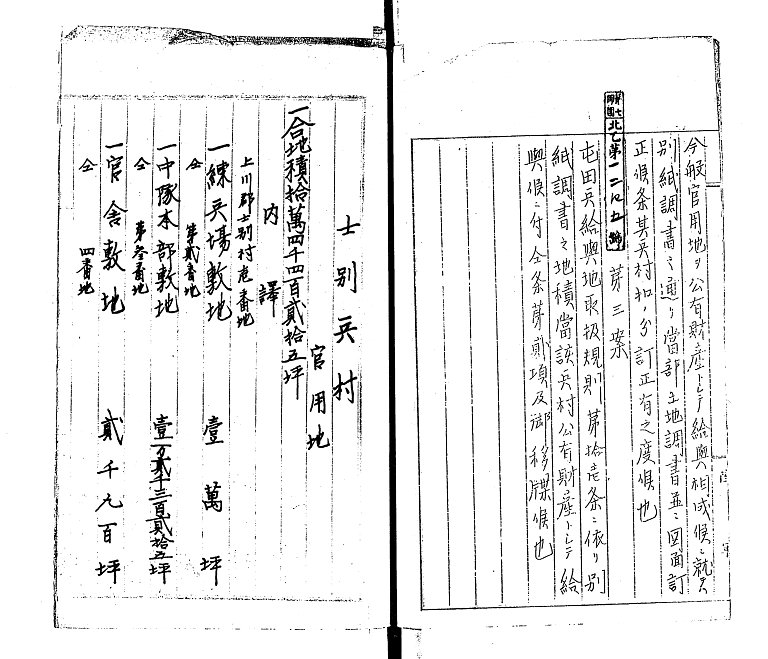 今般官用地ヲ公有財産トシテ給與相成候ニ就テハ
別紙調書之通リ當部土地調書並ニ図面訂
正候条其兵村扣ノ分訂正有之度候也
北乙第一二八五號
第三案
屯田兵給與地取扱規則第拾壱条ニ依リ別
紙調書之地積當該兵村公有財産トシテ給
與候ニ付仝条第貳項及御移牒候也
陸軍
士別兵村
官用地
一合地積拾萬四千四百貳拾五坪
内譯
上川郡士別村壱番地
一練兵場敷地 壹萬坪
仝 第貳番地
一中隊本部敷地 壹万貳千三百貳拾五坪
仝 第叁番地
一官舎敷地 貳千九百坪
仝 四番地